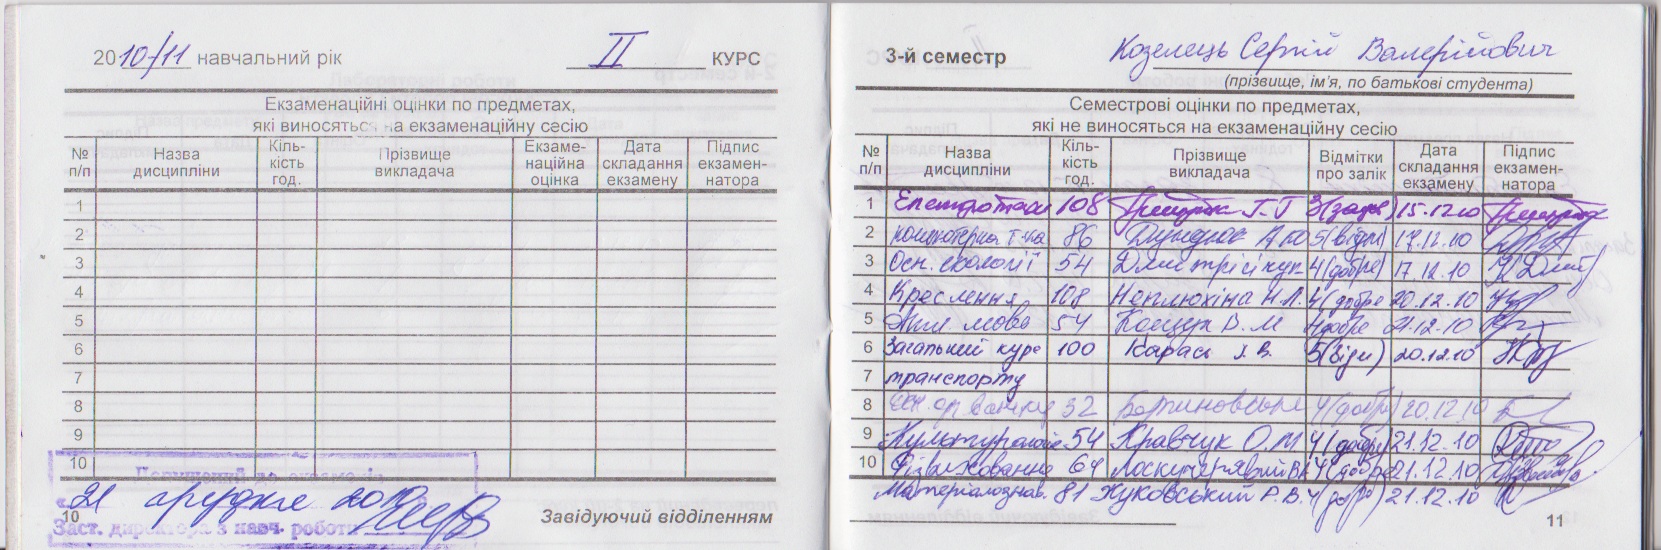 2010/11 навчальний рік II КУРС
Екзаменаційні оцінки по предметах,
які виносяться на екзаменаційну сесію
№ п/п Назва дисципліни Кіль-кість год. Прізвище викладача Екзаме-наційна оцінка Дата складання екзамену Підпис екзамен-натора
1
2
3
4
5
6
7
8
9
10
21 грудня 2010
Заст. директора з навч. роботи
10 Завідуючий відділенням
3-й семестр Козелець Сергій Валерійович
(прізвище, ім'я, по батькові студента)
Семестрові оцінки по предметах,
які не виносяться на екзаменаційну сесію
№ п/п Назва дисципліни Кіль-кість год. Прізвище викладача Відмітки про залік Дата складання екзамену Підпис екзамен-натора
1 108 15.12.10
2 86 5(відм) 17.12.10
3 Осн. екології 54 4(добре) 17.12.10
4 Креслення 108 Неплюхіна Н.Л. 4(добре 20.12.10
5 мова 54 В.М 4добре 21.12.10
6 Загальний курс 100 Карась В. 5(відм) 20.12.10
7 транспорту
8 32 4(добр) 20.12.10
9 Культурологія 54 Кравчук О.М 4(добре) 21.12.10
10 Фізвиховання 64 4(добре 21.12.10
Матеріалознав. 81 Жуковський Р.В. 4(добре) 21.12.10
11